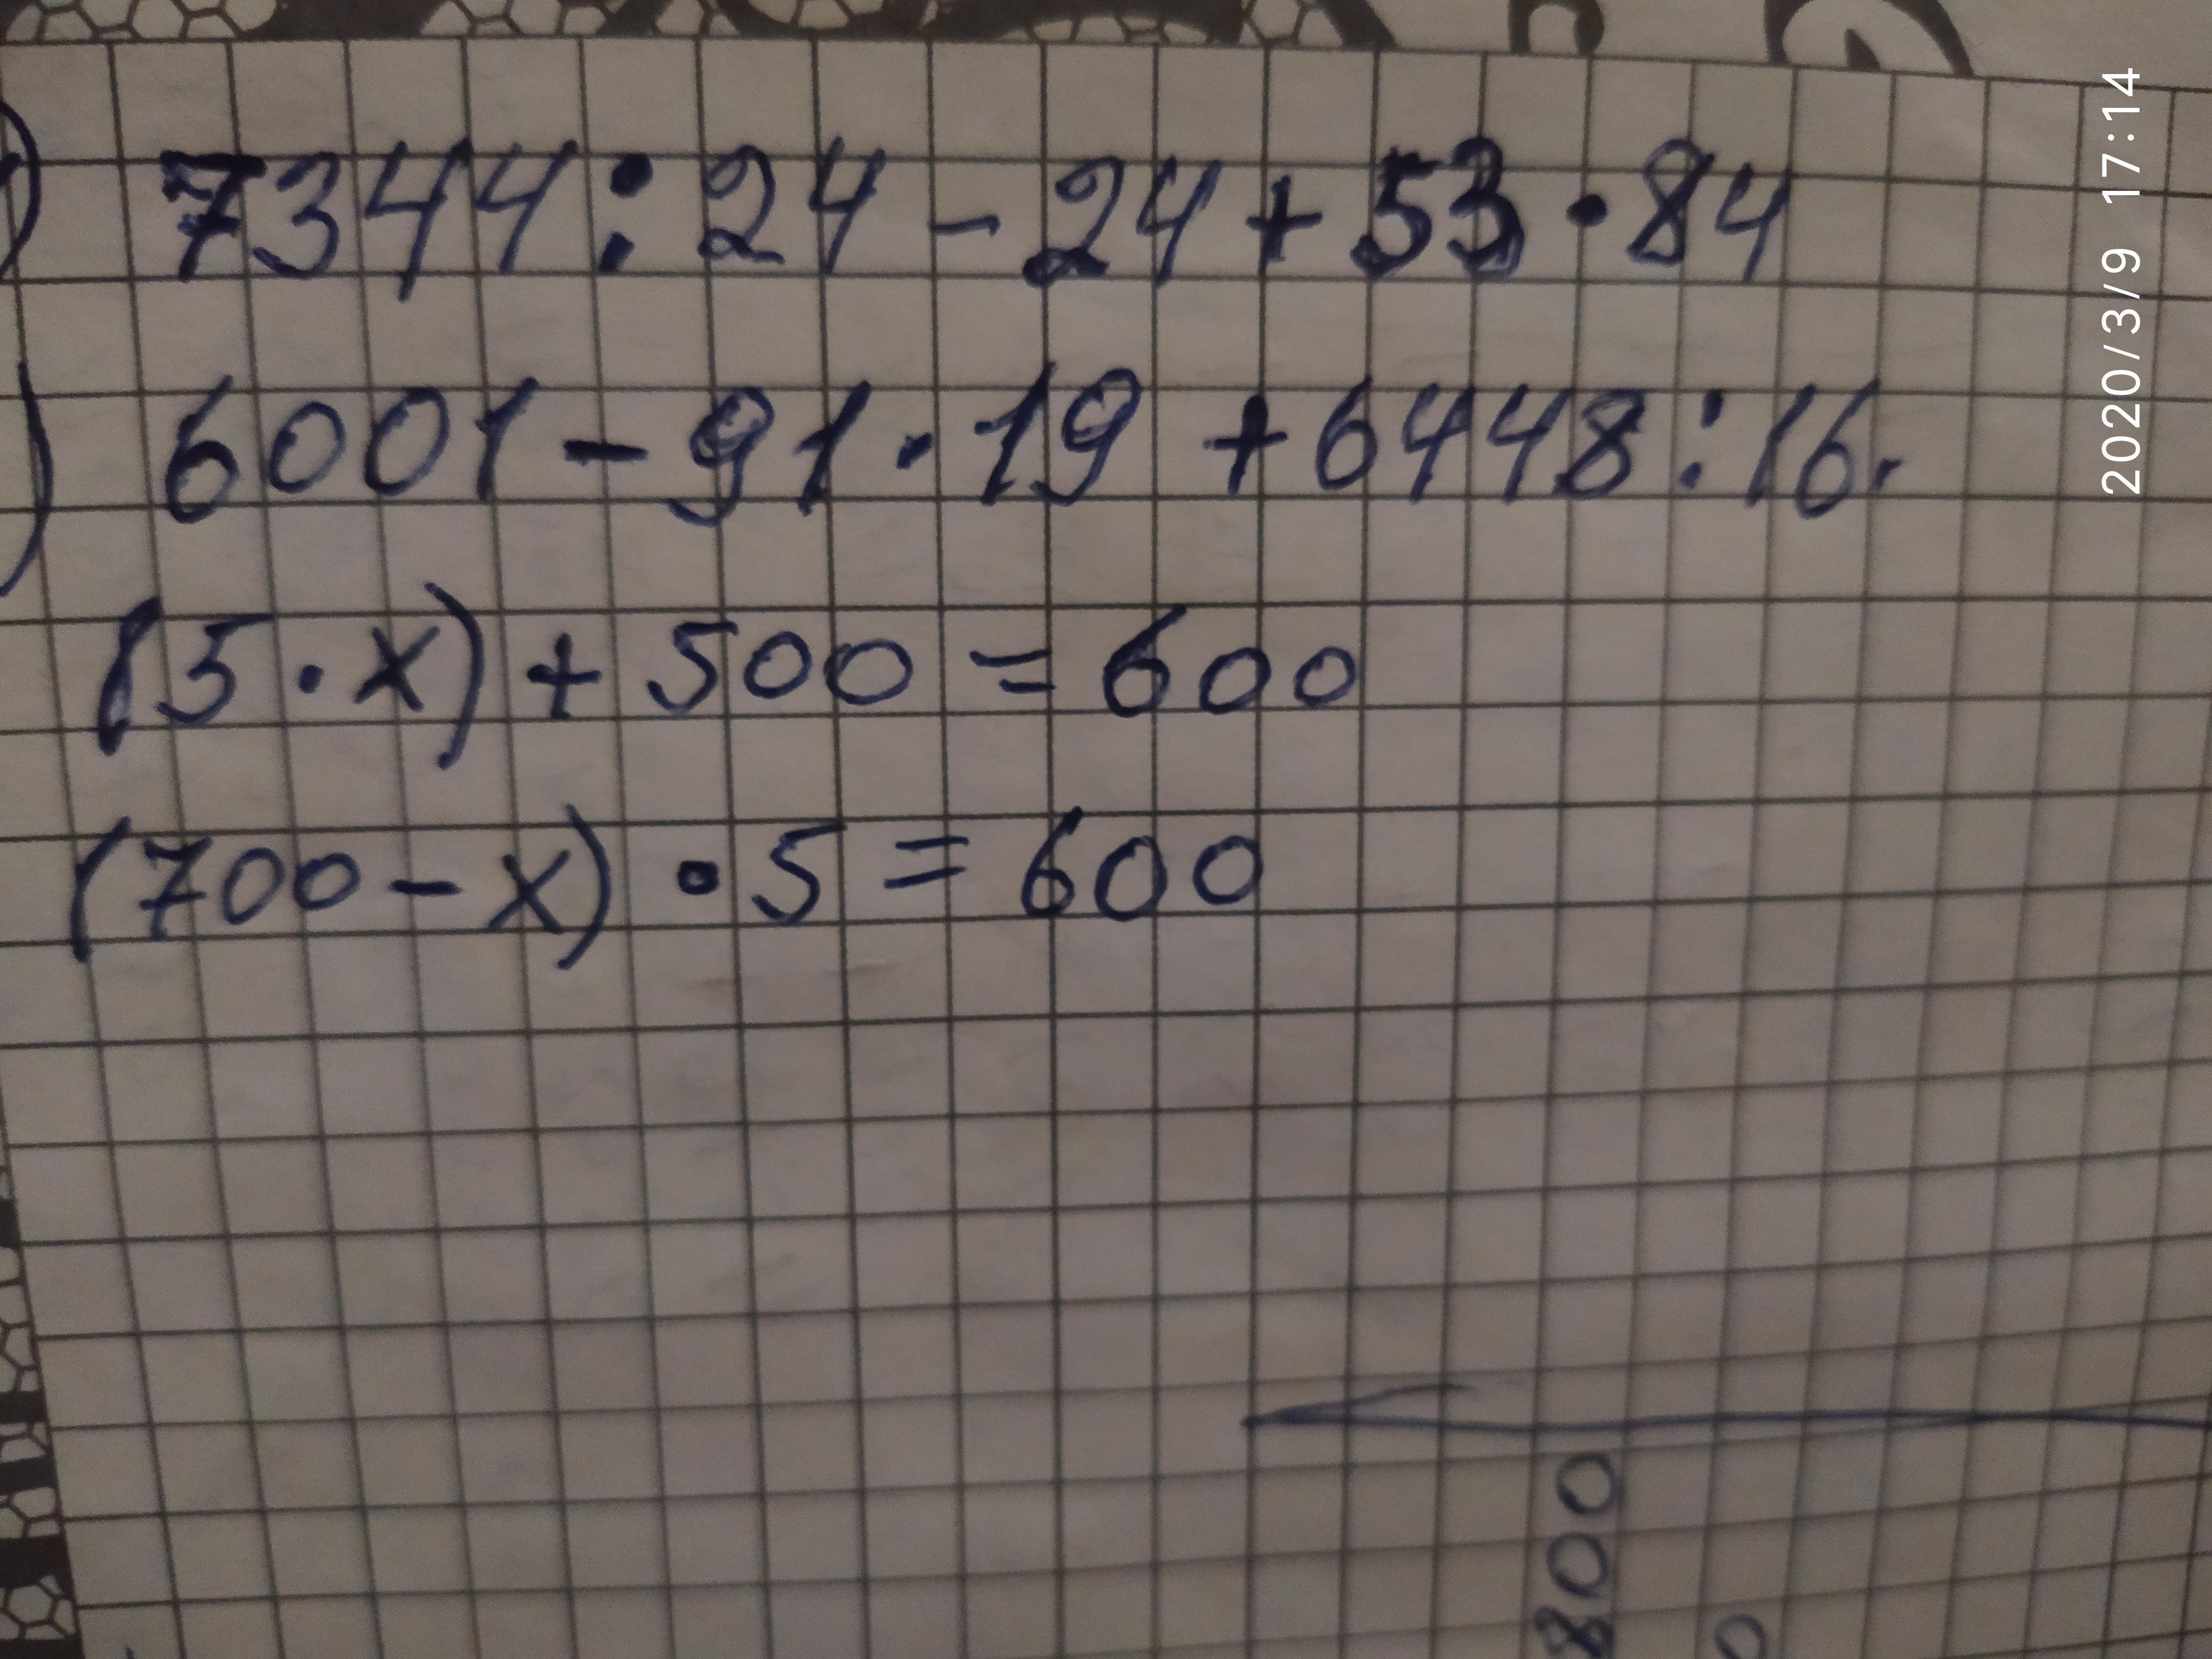 ) 7344:24-24+53·84
) 6001-91·19+6448:16.
(5·x)+500=600
(700-x)·5=600
800
0
2020/3/9 17:14